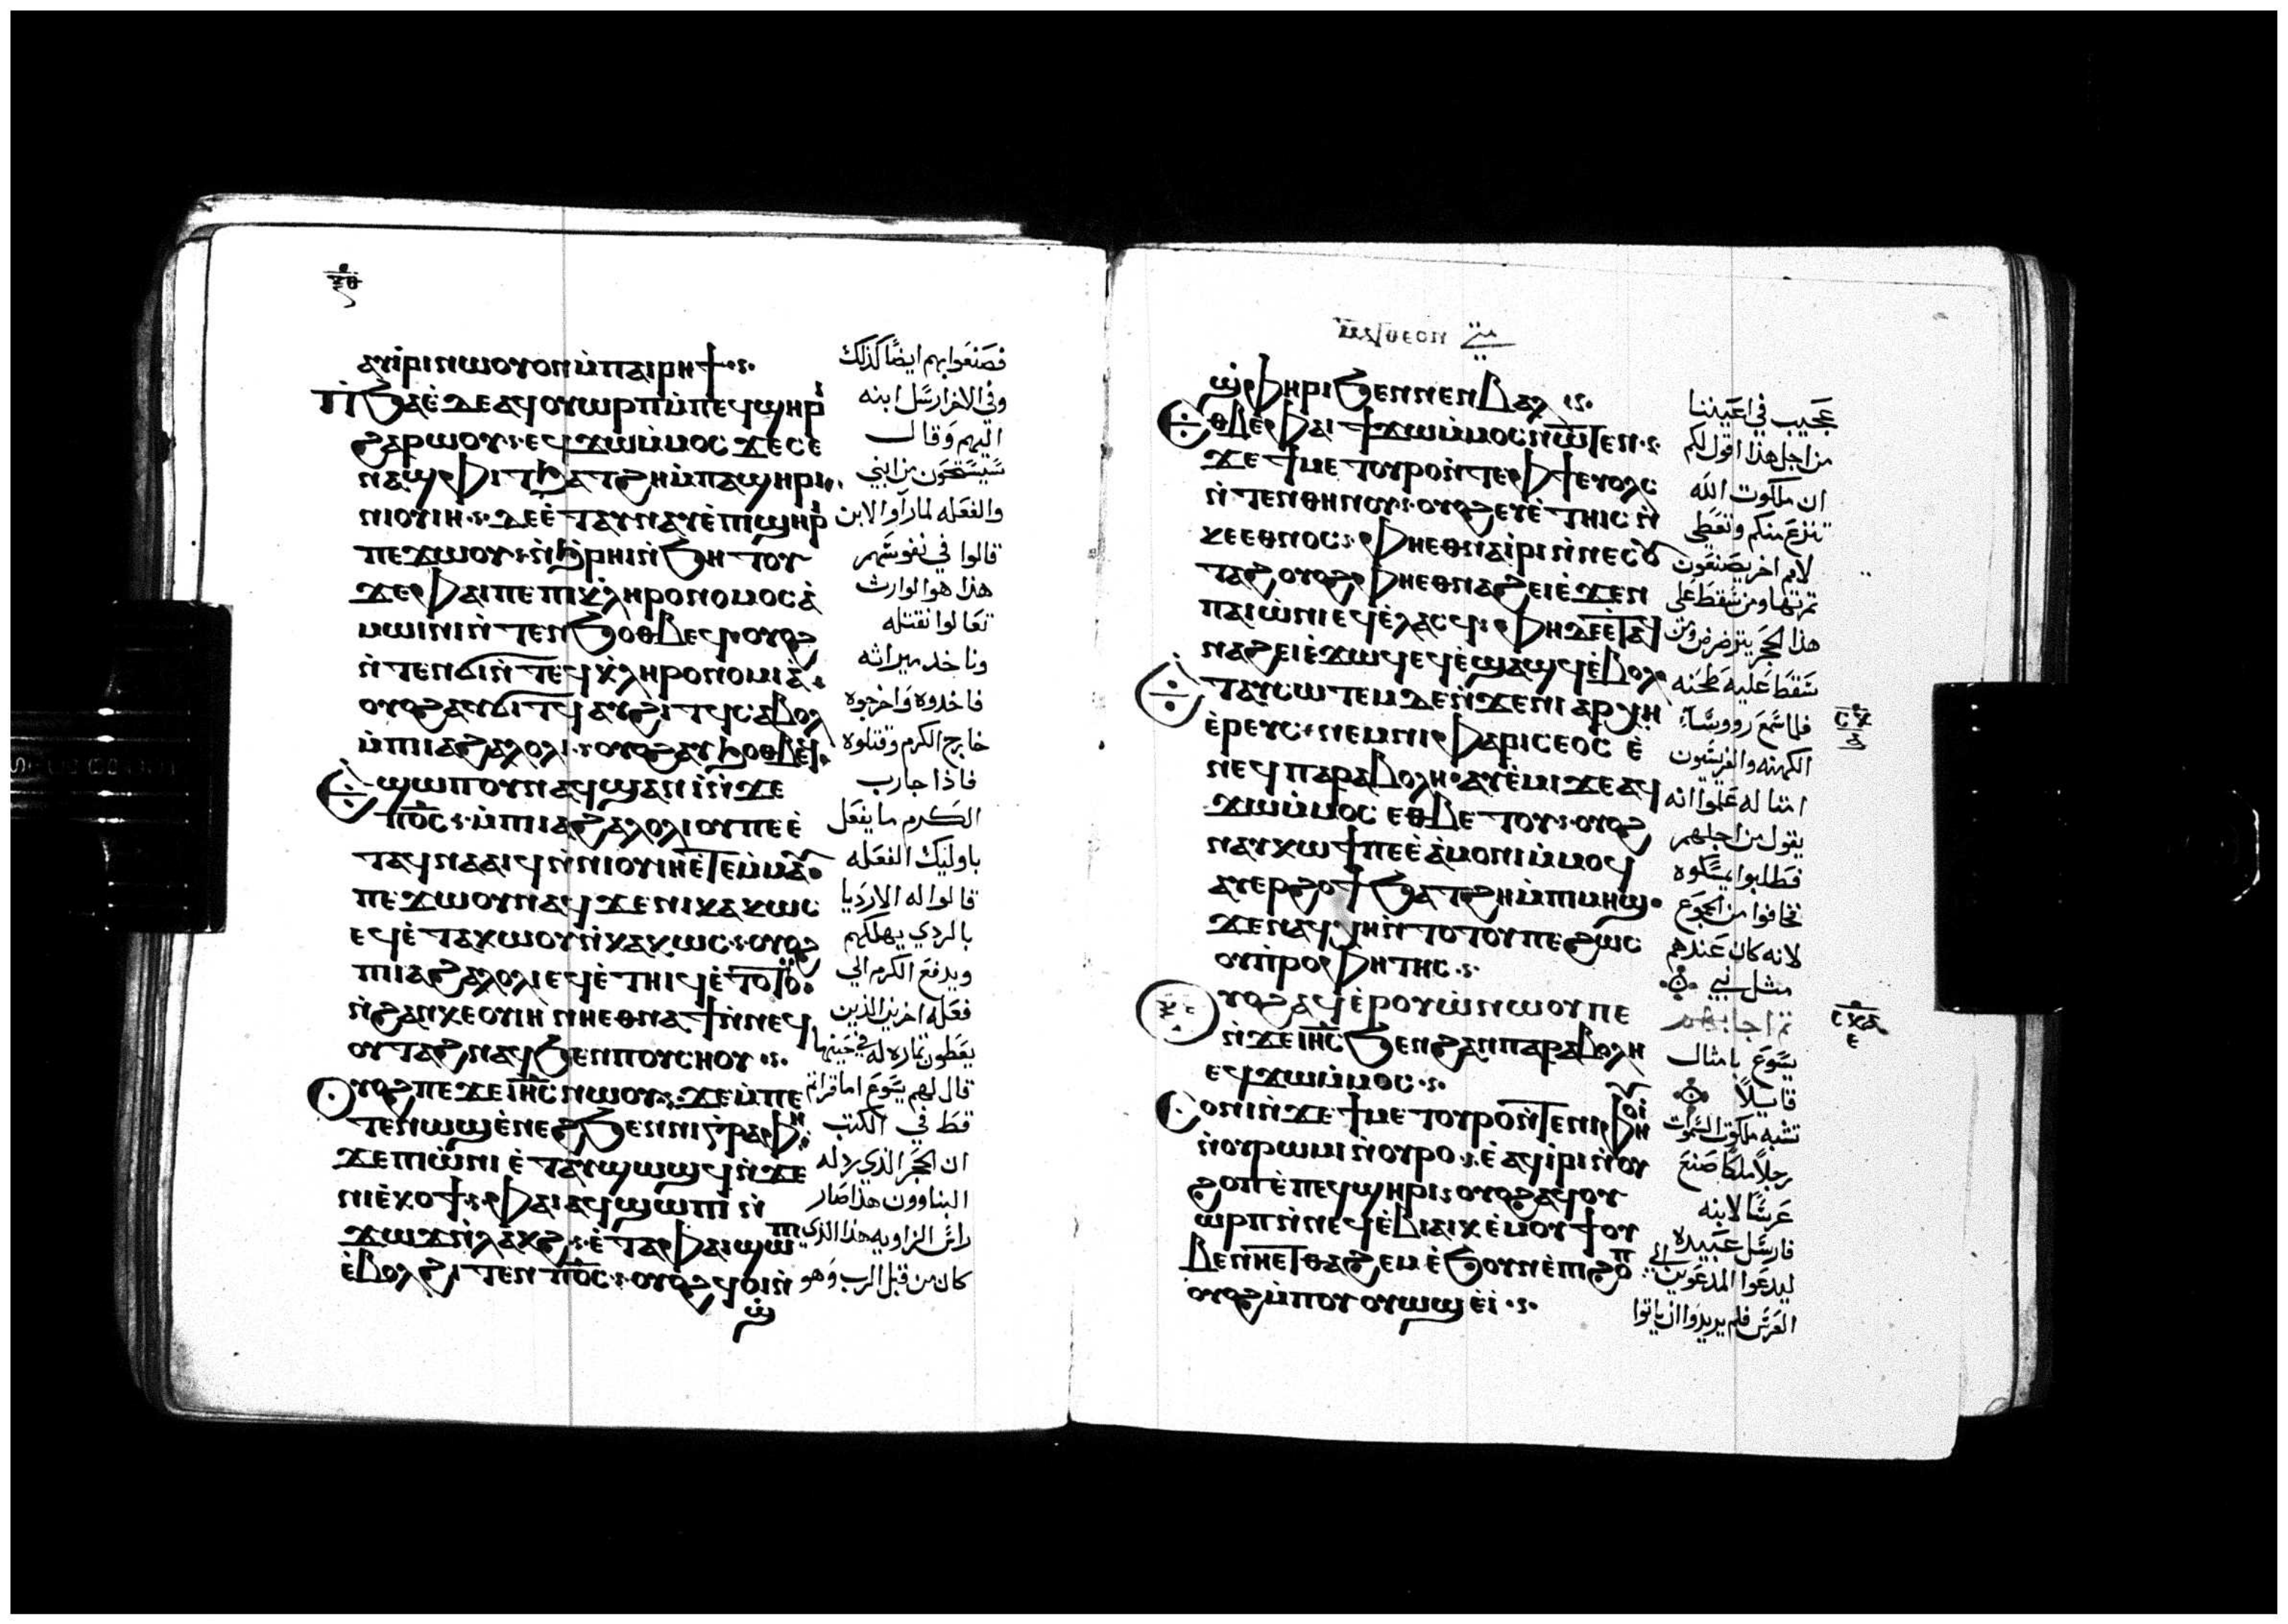 ⲝ̅ⲑ̅
ⲁⲩⲓ̀ⲣⲓⲛⲱⲟⲩⲟⲛⲙ̀ⲡⲁⲓⲣⲏϯ
ⲡⲓϧⲁⲉ̀ⲇⲉⲁϥⲟⲩⲱⲣⲡⲙ̀ⲡⲉϥϣⲏⲣⲓ
ϩⲁⲣⲱⲟⲩⲉϥϫⲱⲙ̀ⲙⲟⲥϫⲉⲥⲉ
ⲛⲁϣⲫⲓⲧϧⲁⲧϩⲏⲙ̀ⲡⲁϣⲏⲣⲓ
ⲛⲓⲟⲩⲓⲏⲇⲉⲉ̀ⲧⲁⲩⲛⲁⲩⲉ̀ⲡⲓϣⲏⲣⲓ
ⲡⲉϫⲱⲟⲩⲛ̀ϩ̀ⲣⲏⲓⲛ̀ϧⲏⲧⲟⲩ
ϫⲉⲫⲁⲓⲡⲉⲡⲓⲕ̀ⲗⲏⲣⲟⲛⲟⲙⲟⲥⲁ̀
ⲙⲱⲓⲛⲓⲛ̀ⲧⲉⲛϧⲟⲑⲃⲉϥⲟⲩⲟϩ
ⲛ̀ⲧⲉⲛϭⲓⲛ̀ⲧⲉϥⲕ̀ⲗⲏⲣⲟⲛⲟⲙⲓⲁ̀
ⲟⲩⲟϩⲁⲩϭⲓⲧϥⲁⲩϩⲓⲧϥⲥⲁⲃⲟⲗ
ⲙ̀ⲡⲓⲁϩⲁⲗⲟⲗⲓⲟⲩⲟϩⲁⲩϧⲟⲑⲃⲉϥ
ⲉϣⲱⲡⲟⲩⲛⲁϥϣⲁⲛⲓ̀ⲛ̀ϫⲉ
ⲡ̅ⲟ̅ⲥ̅ⲙ̀ⲡⲓⲁϩⲁⲗⲟⲗⲓⲟⲩⲡⲉⲉ̀
ⲧⲁϥⲛⲁⲁⲓϥⲛ̀ⲛⲓⲟⲩⲓⲏⲉ̀ⲧⲉⲙ̀ⲙⲁⲩ
ⲡⲉϫⲱⲟⲩⲛⲁϥϫⲉⲛⲓⲕⲁⲕⲱⲥ
ⲉϥⲉ̀ⲧⲁⲕⲱⲟⲩⲛ̀ⲕⲁⲕⲱⲥⲟⲩⲟϩ
ⲡⲓⲁϩⲁⲗⲟⲗⲓⲉϥⲉ̀ⲧⲏⲓϥⲉ̀ⲧⲟⲧⲟⲩ
ⲛ̀ϩⲁⲛⲕⲉⲟⲩⲓⲏⲛ̀ⲛⲏⲉⲑⲛⲁϯⲛ̀ⲛⲉϥ
ⲟⲩⲧⲁϩⲛⲁϥϧⲉⲛⲡⲟⲩⲥⲏⲟⲩ
ⲟⲩⲟϩⲡⲉϫⲉⲓⲏ̅ⲥ̅ⲛⲱⲟⲩϫⲉⲙ̀ⲡⲉ
ⲧⲉⲛⲱϣⲉ̀ⲛⲉϩϧⲉⲛⲛⲓⲅ̀ⲣⲁⲫⲏ
ϫⲉⲡⲓⲱ̀ⲛⲓⲉ̀ⲧⲁⲩϣⲱϣϥⲛ̀ϫⲉ
ⲛⲓⲉ̀ⲕⲟϯⲫⲁⲓⲁϥϣⲱⲡⲓⲛ̀
ϫⲱϫⲛ̀ⲗⲁⲕϩⲉ̀ⲧⲁⲫⲁⲓϣⲱⲡⲓ
ⲉ̀ⲃⲟⲗϩⲓⲧⲉⲛⲡ̅ⲟ̅ⲥ̅ⲟⲩⲟϩϥⲟⲓⲛ̀
ϣ̀
فصنعوا بهم ايضًا كذلك
وفي الاخر ارسل ابنه
اليهم وقال
سيستحون من ابني
والفعله لما رآوا الابن
قالوا في نفوسهم
هذا هو الوارث
تعالوا نقتله
وناخد ميراثه
فاخدوه واخرجوه
خارج الكرم وقتلوه
فاذا جا رب
الكرم ما يفعل
باوليك الفعله
قالوا له الارديا
بالردي يهلكهم
ويدفع الكرم الي
فعله اخر الذين
يعطون تماره له في حينها
قال لهم يسوع اما قراتم
قط في الكتب
ان الحجر الذي رد له
البناوون هذا صار
راس الزاويه هذا الذي
كان من قبل الرب وهو
ⲙⲁⲧⲑⲉⲟⲛ متي
ϣ̀ⲫⲏⲣⲓϧⲉⲛⲛⲉⲛⲃⲁⲗ
ⲉⲑⲃⲉⲫⲁⲓϯϫⲱⲙ̀ⲙⲟⲥⲛⲱⲧⲉⲛ
ϫⲉϯⲙⲉⲧⲟⲩⲣⲟⲛ̀ⲧⲉⲫϯⲉⲩⲟⲗⲥ
ⲛ̀ⲧⲉⲛⲑⲏⲛⲟⲩⲟⲩⲟϩⲉⲩⲉ̀ⲧⲏⲓⲥⲛ̀
ⲕⲉⲉⲑⲛⲟⲥⲫⲏⲉⲑⲛⲁⲓ̀ⲣⲓⲛ̀ⲛⲉⲥⲟⲩ
ⲧⲁϩⲟⲩⲟϩⲫⲏⲉⲑⲛⲁϩⲉⲓⲉ̀ϫⲉⲛ
ⲡⲁⲓⲱ̀ⲛⲓⲉϥⲉ̀ⲗⲁⲥϥⲫⲏⲇⲉⲉ̀ⲧⲁϥ
ⲛⲁϩⲉⲓⲉ̀ϫⲱϥⲉϥⲉ̀ϣⲁϣϥⲉ̀ⲃⲟⲗ
ⲉⲧⲁⲩⲥⲱⲧⲉⲙⲇⲉⲛ̀ϫⲉⲛⲓⲁⲣⲭⲏ
ⲉ̀ⲣⲉⲩⲥⲛⲉⲙⲛⲓⲫⲁⲣⲓⲥⲉⲟⲥⲉ̀
ⲛⲉϥⲡⲁⲣⲁⲃⲟⲗⲏⲁⲩⲉ̀ⲙⲓϫⲉⲁϥ
ϫⲱⲙ̀ⲙⲟⲥⲉⲑⲃⲉⲧⲟⲩⲟⲩⲟϩ
ⲛⲁⲩⲕⲱϯⲡⲉⲉ̀ⲁ̀ⲙⲟⲛⲓⲙ̀ⲙⲟϥ
ⲁⲩⲉⲣϩⲟϯϧⲁⲧϩⲏⲙ̀ⲡⲓⲙⲏϣ
ϫⲉⲛⲁϥⲭⲏⲛ̀ⲧⲟⲧⲟⲩⲡⲉϩⲱⲥ
ⲟⲩⲡ̀ⲣⲟⲫⲏⲧⲏⲥ
ⲟⲩⲟϩⲁϥⲉ̀ⲣⲟⲩⲱ̀ⲛⲱⲟⲩⲡⲉ
ⲛ̀ϫⲉⲓⲏ̅ⲥ̅ϧⲉⲛϩⲁⲛⲡⲁⲣⲁⲃⲟⲗⲏ
ⲉϥϫⲱⲙ̀ⲙⲟⲥ
ⲥⲟⲛⲓⲛ̀ϫⲉϯⲙⲉⲧⲟⲩⲣⲟⲛ̀ⲧⲉⲛⲓⲫⲏⲟⲩⲓ̀
ⲛ̀ⲟⲩⲣⲱⲙⲓⲛ̀ⲟⲩⲣⲟⲉ̀ⲁϥⲓ̀ⲣⲓⲛ̀ⲟⲩ
ϩⲟⲡⲉ̀ⲡⲉϥϣⲏⲣⲓⲟⲩⲟϩⲁϥⲟⲩ
ⲱⲣⲡⲛ̀ⲛⲉϥⲉ̀ⲃⲓⲁⲓⲕⲉ̀ⲙⲟⲩϯⲟⲩ
ⲃⲉⲛ̀ⲏⲉⲧⲑⲁϩⲉⲙⲉ̀ϧⲟⲩⲛⲉ̀ⲡⲓϩⲟⲡ
ⲟⲩⲟϩⲙ̀ⲡⲟⲩⲟⲩⲱϣⲉ̀ⲓ̀
عجيب في اعيننا
من اجل هذا اقول لكم
ان ملكوت الله
تنزع منكم وتعطي
لامم اخر يصنعون
تمرتها ومن سقط علي
هذا الحجر يترضرض ومن
سقط عليه طحنه
فلما سمع رووسآء
الكهنه والفريسيون
امثاله علموا انه
يقول من اجلهم
فطلبوا يمسكوه
فخافوا من الجموع
لانه كان عندهم
مثل نبي
تم اجابهم
يسوع بامثال
قايلاً
تشبه ملكوت السموات
رجلاً ملكًا صنع
عرسًا لابنه
فارسل عبيده
ليدعوا المدعوين الي
العرس فلم يريدوا ان ياتوا